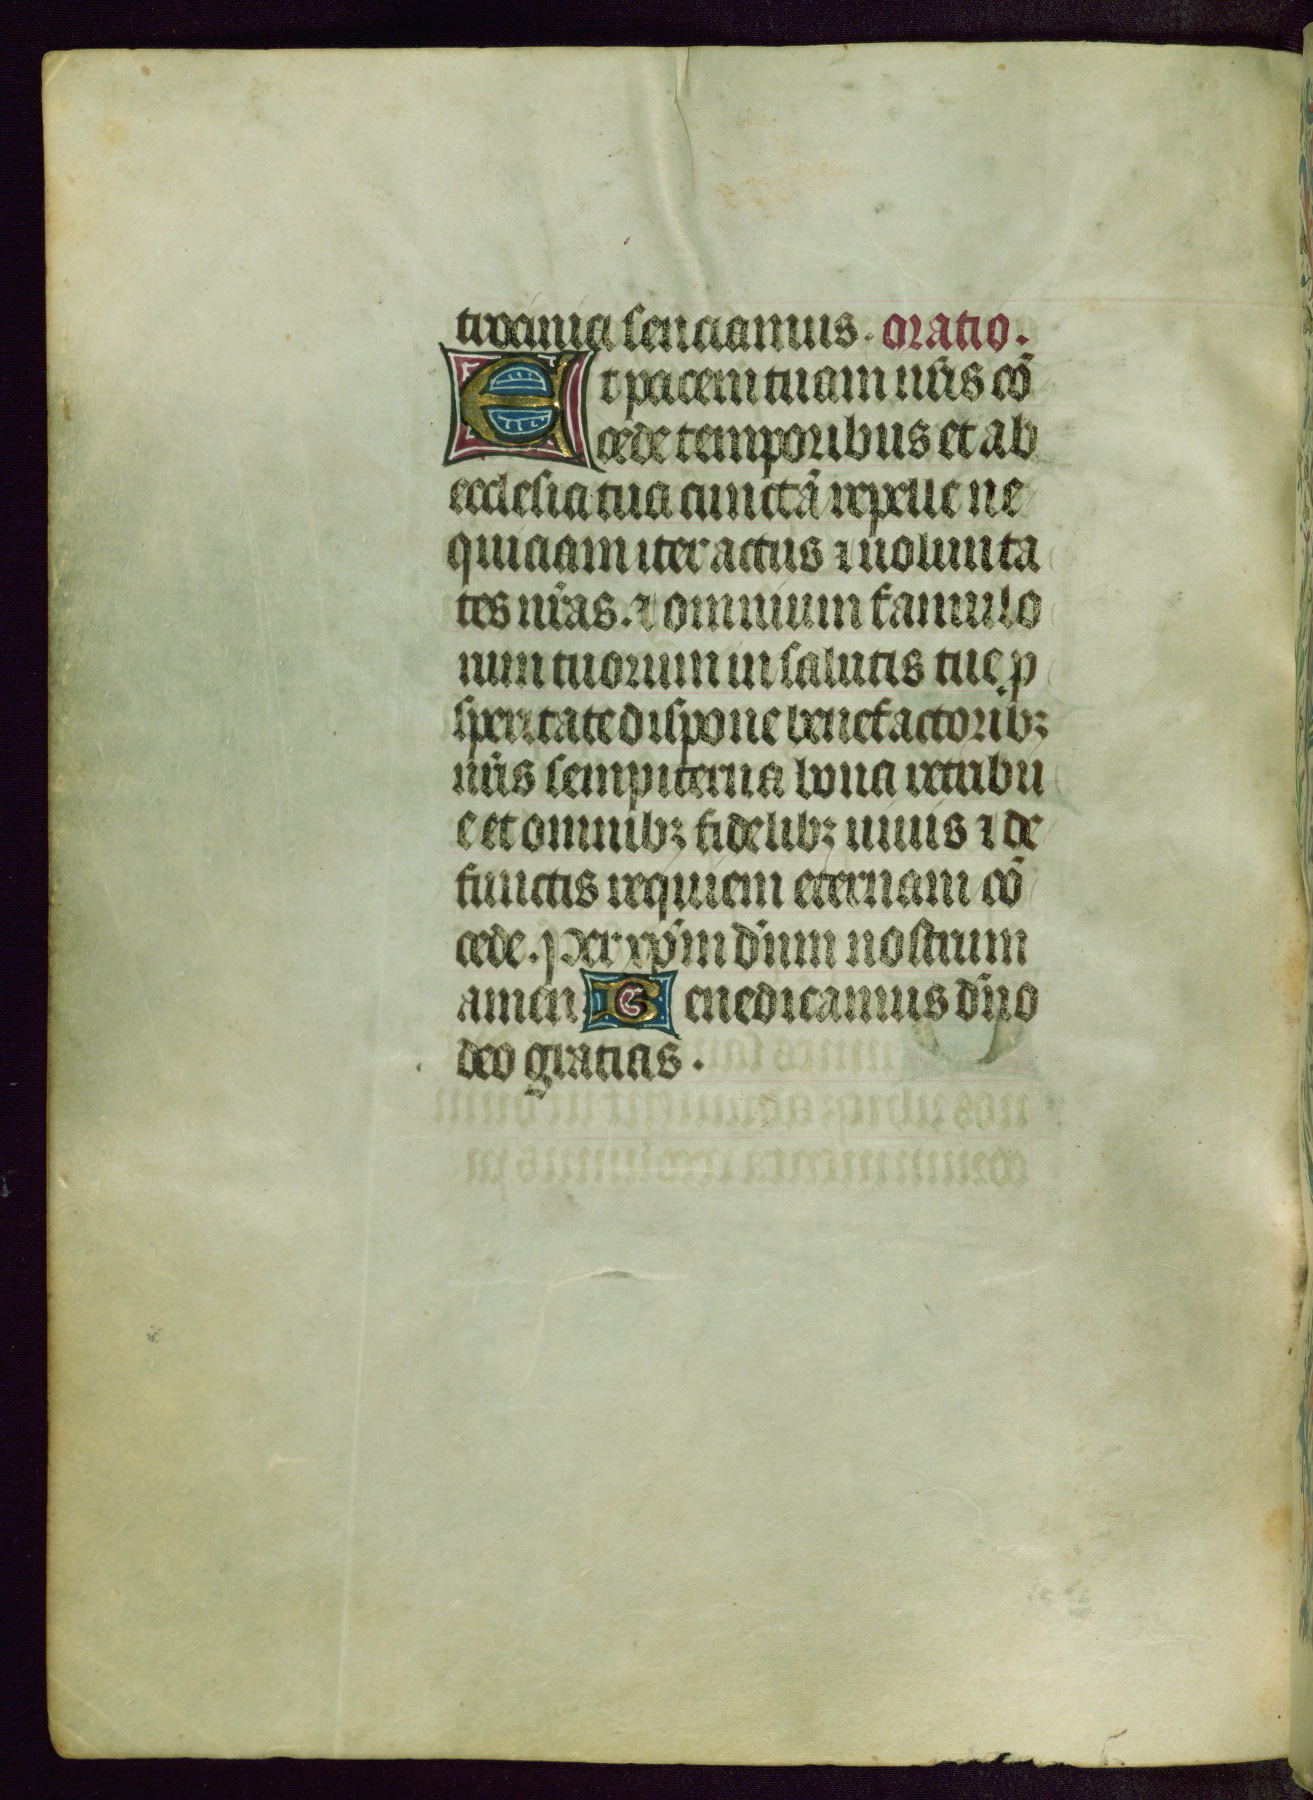 trocinia senciamus. oratio.
Et pacem tuam nr̃is cõ
cede temporibus et ab
ecclesia tua cunctã repelle ne
quiciam iter actus ⁊ uolunta
tes nr̃as. ⁊ omnium famulo
rum tuorum in salutis tue p
speritate dispone benefactoribꝫ
nr̃is sempiterna bona retribu
e et omnibꝫ fidelibꝫ uiuis ⁊ de
functis requiem eternam cõ
cede. Per xp̃m dñm nostrum
amen Benedicamus dño
deo gracias.